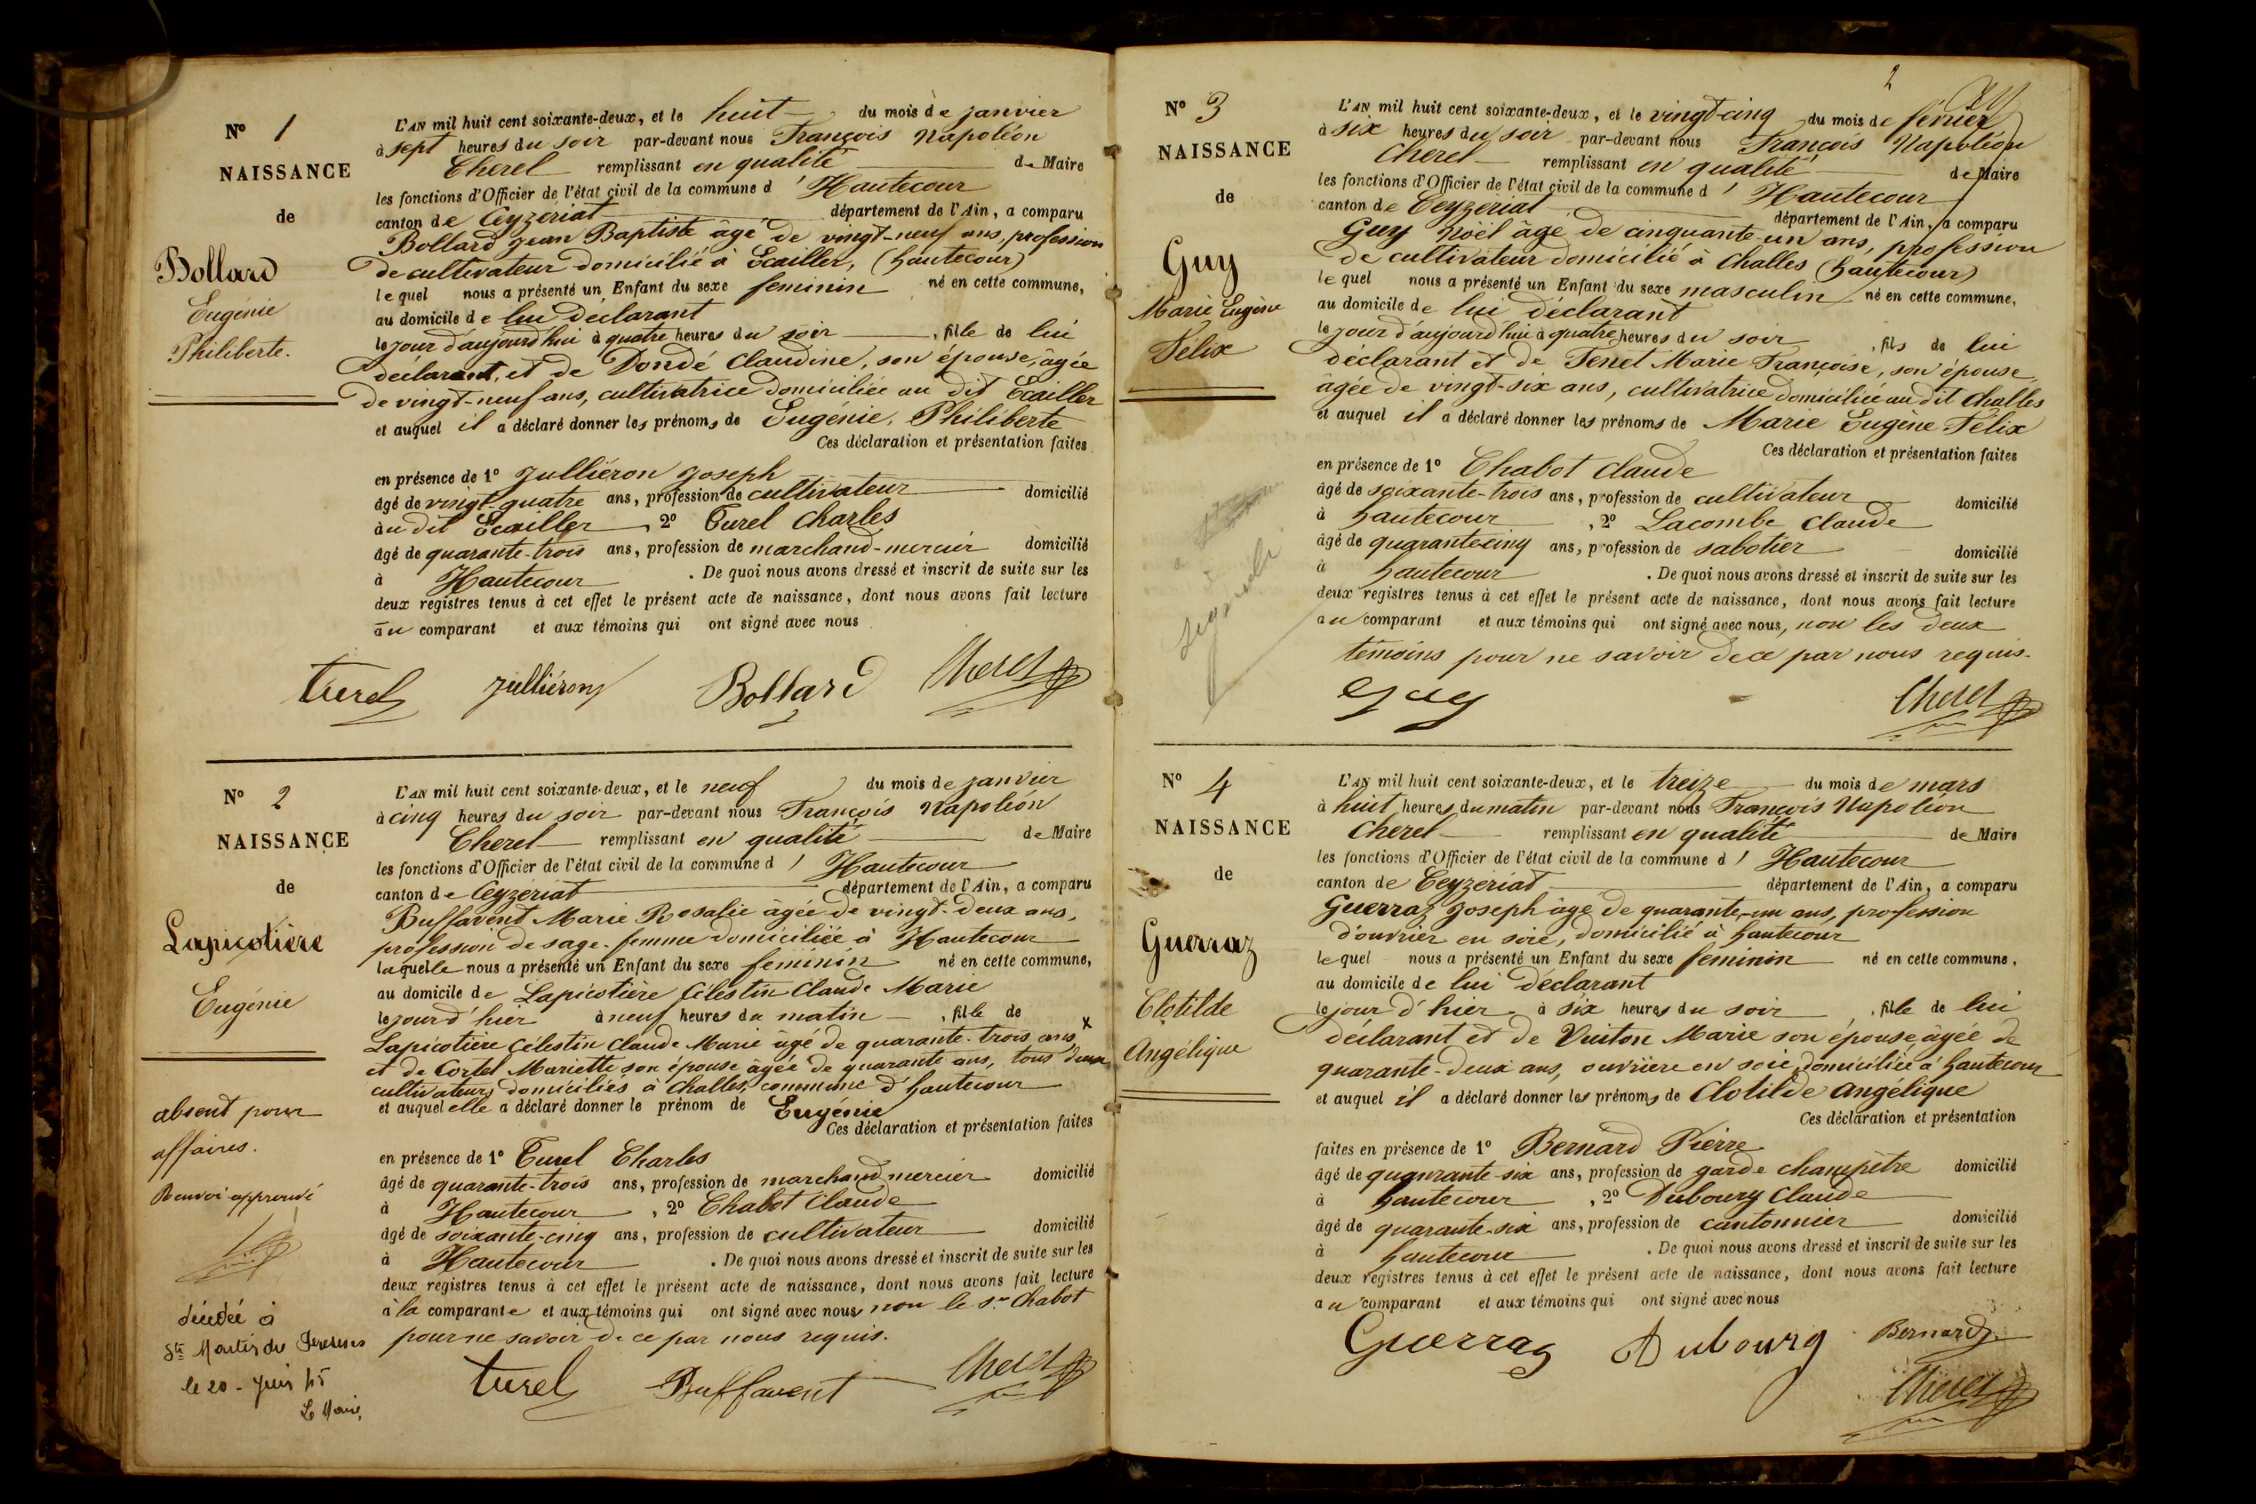 N° 1
NAISSANCE
de
Bollard
Eugénie
Philiberte.
L'AN mil huit cent soixante-deux, et le huit du mois de janvier
à sept heures du soir par-devant nous François Napoléon
Cherel remplissant en qualité de Maire
les fonctions d'Officier de l'état civil de la commune d'Hautecour
canton de Ceyzeriat département de l'Ain, a comparu
Bollard Jean Baptiste âgé de vingt-neuf ans, profession
de cultivateur domicilié à Ecailler, (hautecour)
lequel nous a présenté un Enfant du sexe feminin né en cette commune,
au domicile de lui déclarant
le jour d'aujourd'hui à quatre heures du soir, fille de lui
déclarant, et de Dondé Claudine, son épouse, agée
de vingt-neuf ans, cultivatrice domiciliée au dit Ecailler
et auquel il a déclaré donner les prénoms de Eugénie, Philiberte
Ces déclaration et présentation faites
en présence de 1° Julliéron Joseph
âgé de vingt-quatre ans, profession de cultivateur domicilié
au dit Ecailler, 2° Turel Charles
âgé de quarante-trois ans, profession de marchand-mercier domicilié
à Hautecour. De quoi nous avons dressé et inscrit de suite sur les
deux registres tenus à cet effet le présent acte de naissance, dont nous avons fait lecture
au comparant et aux témoins qui ont signé avec nous
turel julliéron Bollard Cherel
N° 2
NAISSANCE
de
Lapicotière
Eugénie
L'AN mil huit cent soixante-deux, et le neuf du mois de janvier
à cinq heures du soir par-devant nous François Napoléon
Cherel remplissant en qualité de Maire
les fonctions d'Officier de l'état civil de la commune d'Hautecour
canton de Ceyzériat département de l'Ain, a comparu
Buffavent Marie Rosalie âgée de vingt-deux ans,
profession de sage-femme domiciliée à Hautecour
laquelle nous a présenté un Enfant du sexe feminin né en cette commune,
au domicile de Lapicotière Célestin Claude Marie
le jour d'hier à neuf heures du matin, fille de
Lapicotière Célestin Claude Marie âgé de quarante-trois ans x
et de Cortet Mariette son épouse âgée de quarante ans, tous deux
cultivateurs domiciliés à Challes, commune d'hautecour
et auquel elle a déclaré donner le prénom de Eugénie
Ces déclaration et présentation faites
en présence de 1° Turel Charles
âgé de quarante-trois ans, profession de marchand mercier domicilié
à Hautecour, 2° Chabot Claude
âgé de soixante-cinq ans, profession de cultivateur domicilié
à Hautecour. De quoi nous avons dressé et inscrit de suite sur les
deux registres tenus à cet effet le présent acte de naissance, dont nous avons fait lecture
à la comparante et aux témoins qui ont signé avec nous non le sr Chabot
pour ne savoir de ce par nous requis.
turel Buffavent Cherel
absent pour
affaires.
Renvoi approuvé
décédée à
le 20 - Juin 45
Le Maire,
2
N° 3
NAISSANCE
de
Guy
Marie Eugène
Félix
L'AN mil huit cent soixante-deux, et le vingt-cinq du mois de février
à six heures du soir par-devant nous François Napoléon
Cherel remplissant en qualité de Maire
les fonctions d'Officier de l'état civil de la commune d'Hautecour
canton de Ceyzériat département de l'Ain, a comparu
Guy Noël âgé de cinquante-un ans, profession
de cultivateur domicilié à Challes (hautecour)
lequel nous a présenté un Enfant du sexe masculin né en cette commune,
au domicile de lui déclarant
le jour d'aujourd'hui à quatre heures du soir, fils de lui
déclarant et de Tenet Marie Françoise, son épouse
âgée de vingt-six ans, cultivatrice domiciliée au dit Challes
et auquel il a déclaré donner les prénoms de Marie Eugène Félix
Ces déclaration et présentation faites
en présence de 1° Chabot Claude
âgé de soixante-trois ans, profession de cultivateur domicilié
à hautecour, 2° Lacombe Claude
âgé de quarante-cinq ans, profession de sabotier domicilié
à hautecour. De quoi nous avons dressé et inscrit de suite sur les
deux registres tenus à cet effet le présent acte de naissance, dont nous avons fait lecture
au comparant et aux témoins qui ont signé avec nous, non les deux
témoins pour ne savoir de ce par nous requis.
guy Cherel
N° 4
NAISSANCE
de
Guerraz
Clotilde
Angélique
L'AN mil huit cent soixante-deux, et le treize du mois de mars
à huit heures du matin par-devant nous François Napoléon
Cherel remplissant en qualité de Maire
les fonctions d'Officier de l'état civil de la commune d'Hautecour
canton de Ceyzériat département de l'Ain, a comparu
Guerraz Joseph âgé de quarante-un ans, profession
d'ouvrier en soie, domicilié à hautecour
lequel nous a présenté un Enfant du sexe feminin né en cette commune,
au domicile de lui déclarant
le jour d'hier à six heures du soir, fille de lui
déclarant et de Vuiton Marie son épouse âgée de
quarante-deux ans, ouvrière en soie domiciliée à hautecour
et auquel il a déclaré donner les prénoms de Clotilde Angélique
Ces déclaration et présentation
faites en présence de 1° Bernard Pierre
âgé de quanrante-six ans, profession de garde champêtre domicilié
à hautecour, 2° Dubourg Claude
âgé de quarante-six ans, profession de cantonnier domicilié
à hautecour. De quoi nous avons dressé et inscrit de suite sur les
deux registres tenus à cet effet le présent acte de naissance, dont nous avons fait lecture
au comparant et aux témoins qui ont signé avec nous
Guerraz Dubourg Bernard
Cherel